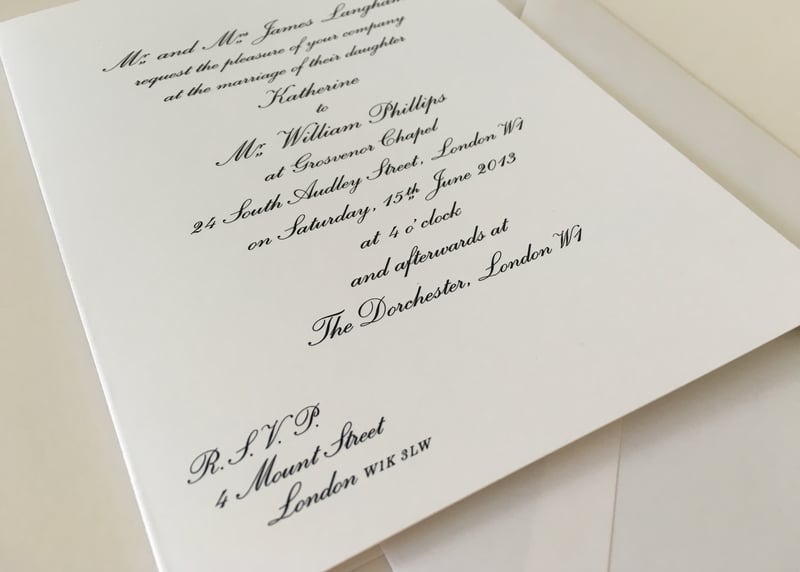 Mr. and Mrs. James Langham
request the pleasure of your company
at the marriage of their daughter
Katherine
to
Mr. William Phillips
at Grosvenor Chapel
24 South Audley Street, London W1
on Saturday, 15th June 2013
at 4 o'clock
and afterwards at
The Dorchester, London W1
R.S.V.P.
4 Mount Street
London W1K 3LW